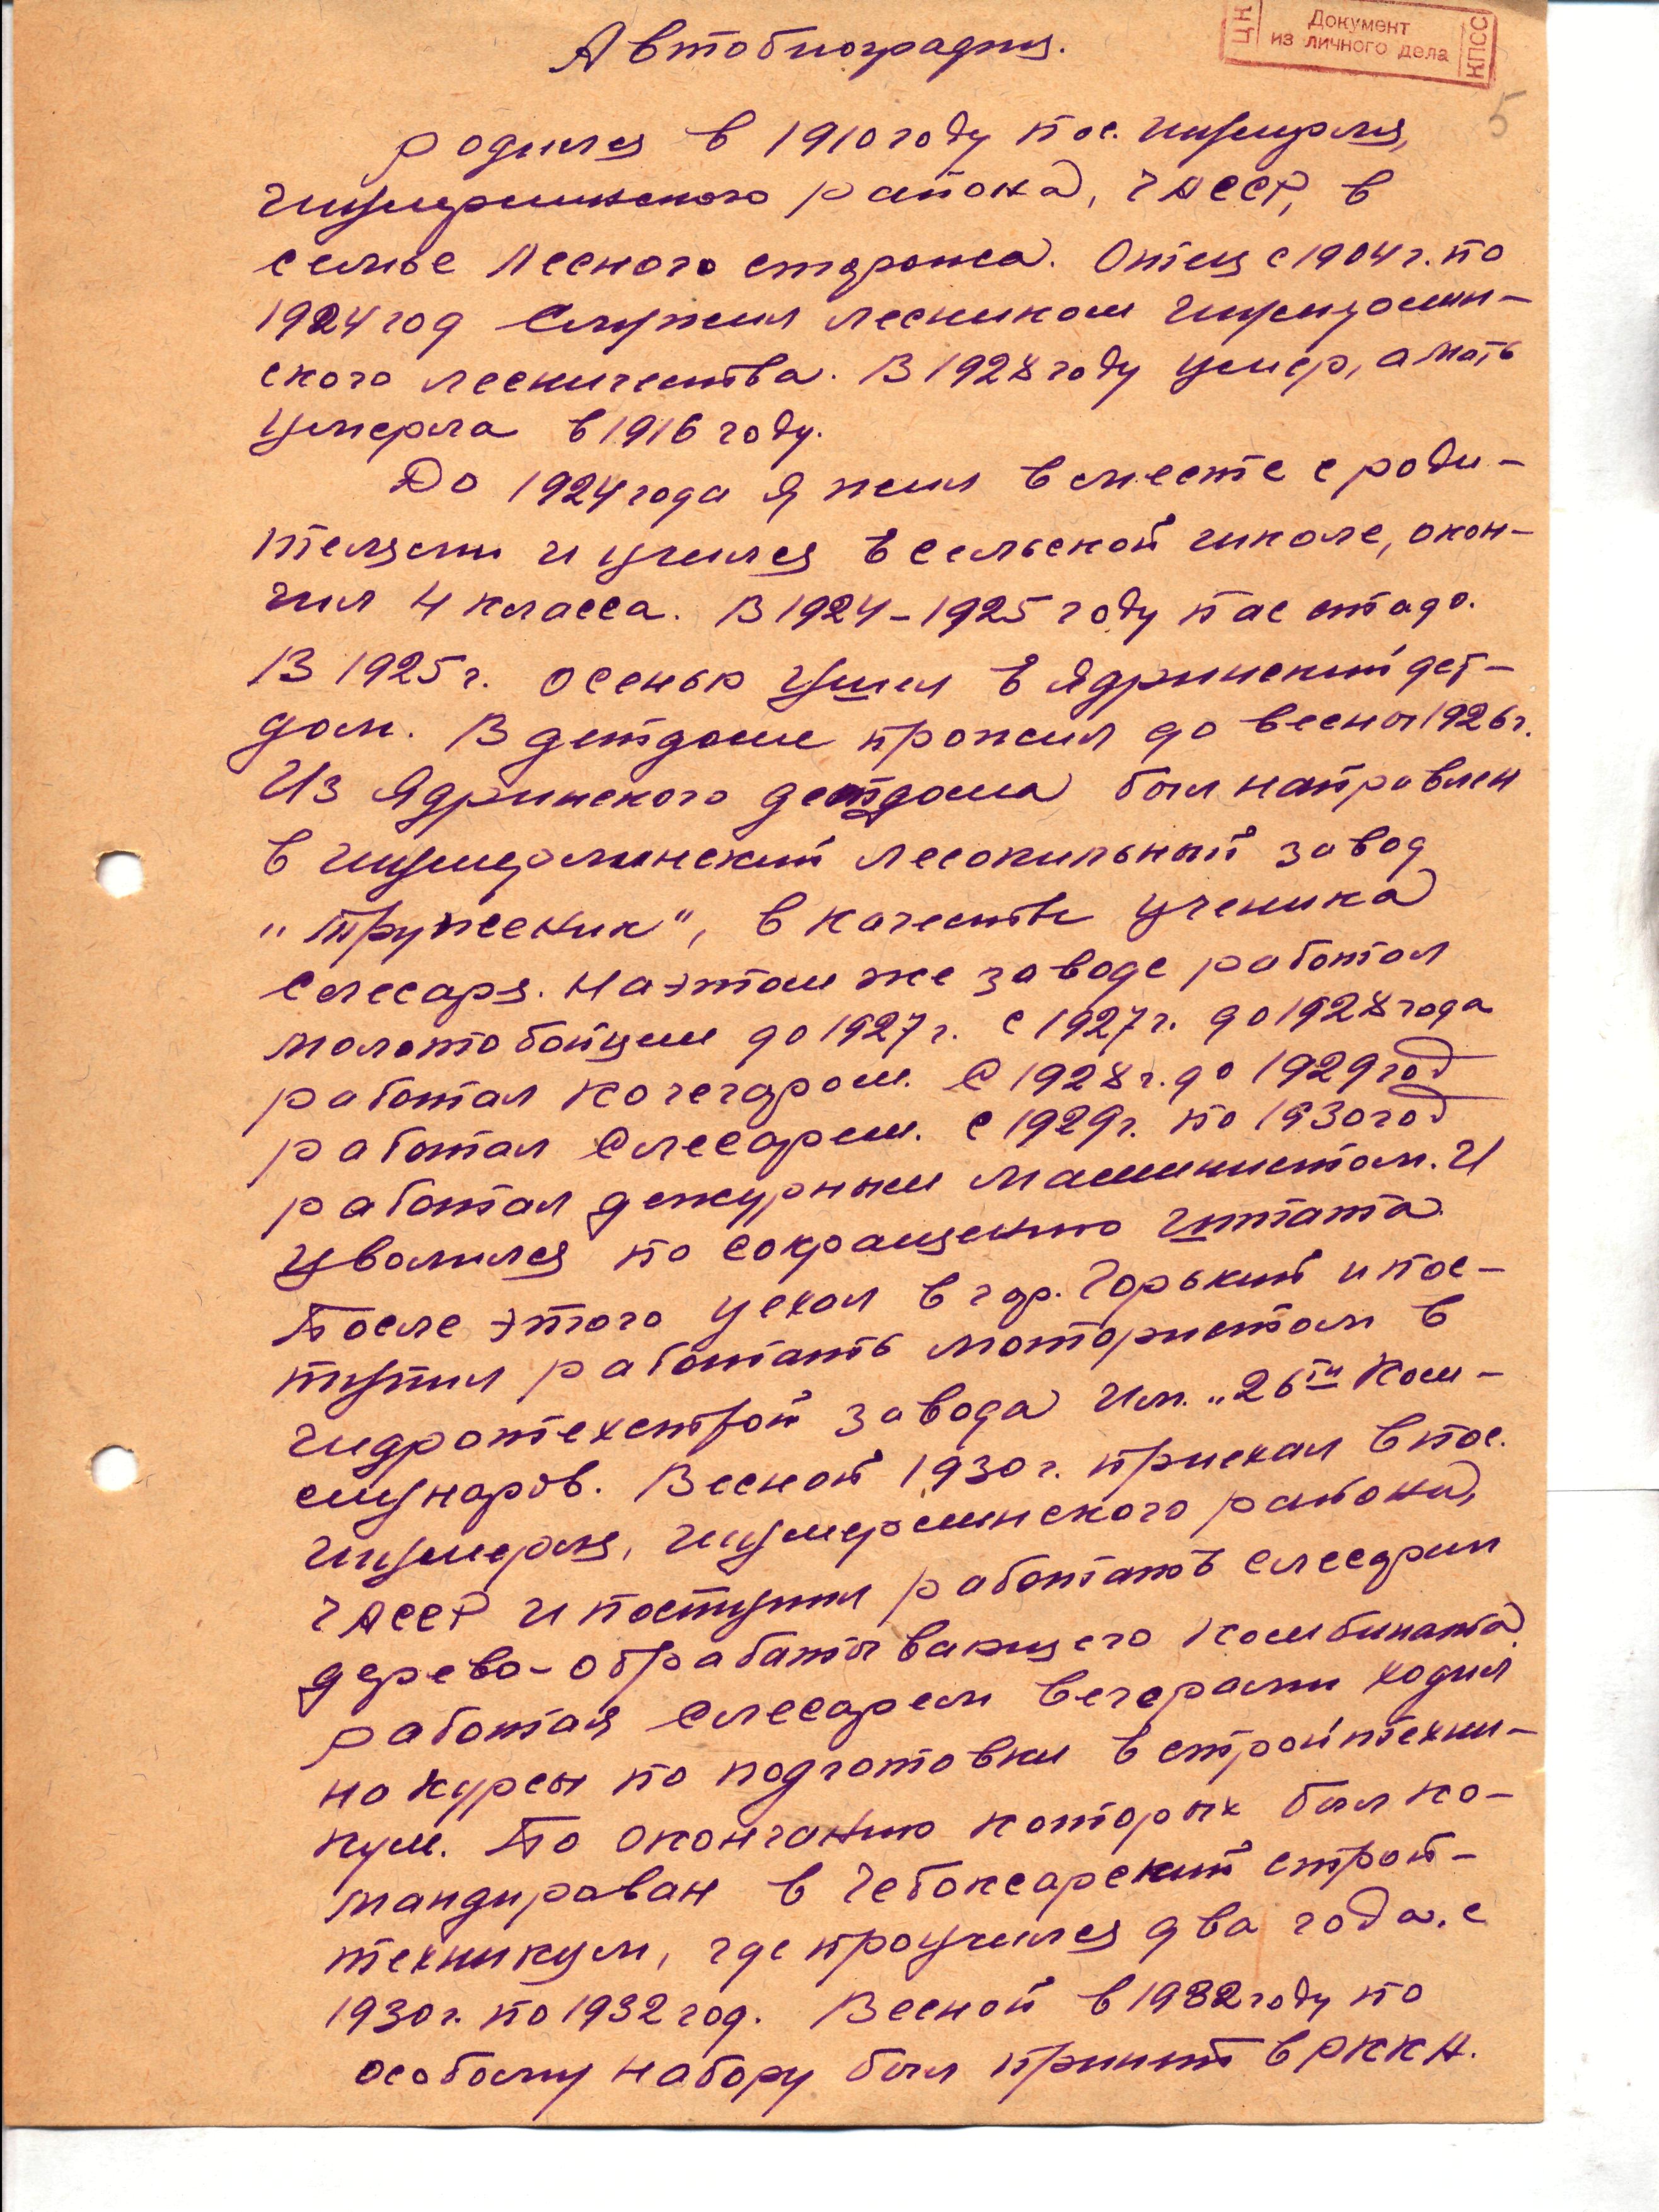 Автобиография.
ЦК
Документ
из личного дела
КПСС
5
Родился в 1910 году пос. Шумерля,
Шумерлинского района, ЧАССР, в
семье лесного сторожа. Отец с 1904 г. по
1924 год служил лесником Шумерлин-
ского лесничества. В 1928 году умер, а мать
умерла в 1916 году.
До 1924 года я жил вместе с роди-
телями и учился в сельской школе, окон-
чил 4 класса. В 1924-1925 году пас стадо.
В 1925 г. осенью ушел в Ядринский дет-
дом. В детдоме прожил до весны 1926 г.
Из Ядринского детдома был направлен
в Шумерлинский лесопильный завод
„Труженик", в качестве ученика
слесаря. На этом же заводе работал
молотобойцем до 1927 г. с 1927 г. до 1928 года
работал кочегаром. С 1928 г. до 1929 год
работал слесарем. с 1929 г. по 1930 год
работал дежурным машинистом. И
уволился по сокращению штата.
После этого уехал в гор. Горький и пос-
тупил работать мотористом в
гидротехстрой завода им. „26ти Ком-
мунаров. Весной 1930 г. приехал в пос.
Шумерля, Шумерлинского района,
ЧАССР и поступил работать слесарем
дерево-обрабатывающего комбината.
Работая слесарем вечерами ходил
на курсы по подготовки в стройтехни-
кум. По окончанию которых был ко-
мандирован в Чебоксарский строй-
техникум, где проучился два года. с
1930 г. по 1932 год. Весной в 1932 году по
особому набору был принят в РККА.